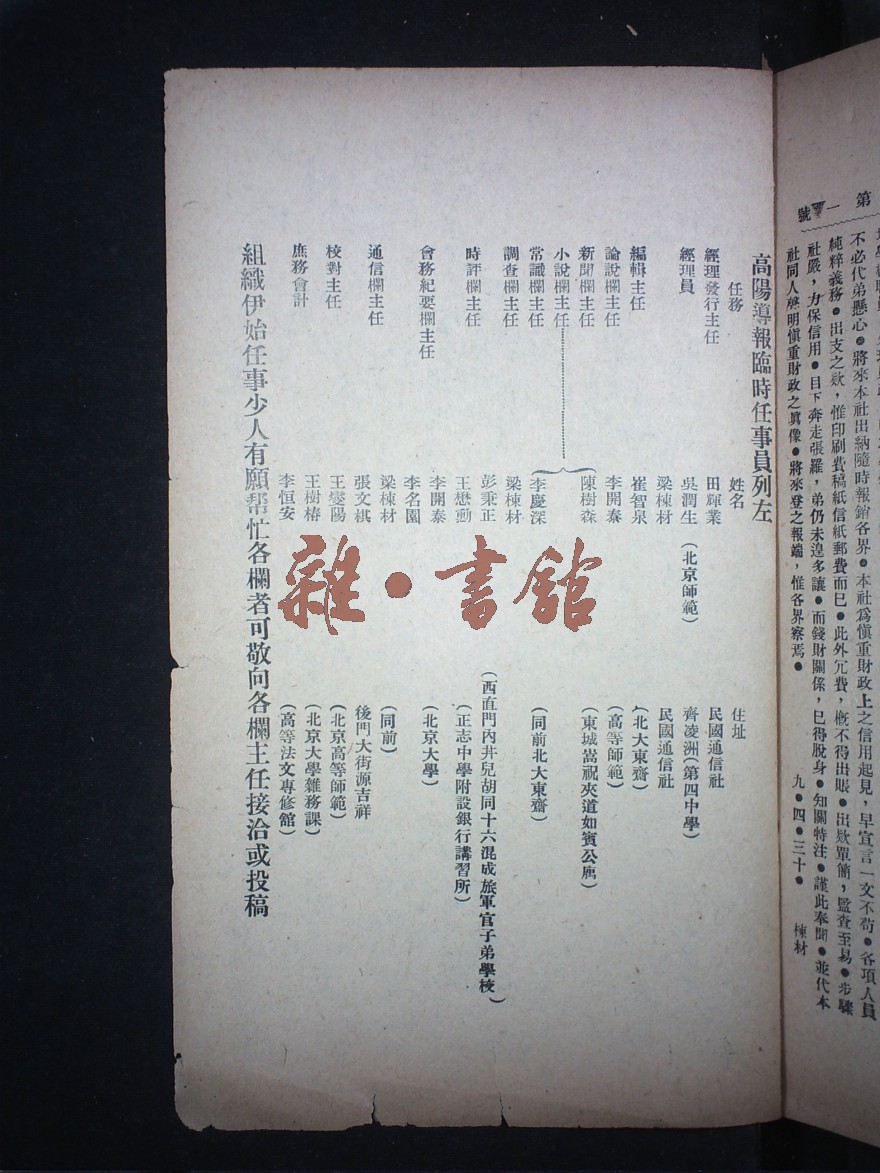 第一號
不必代弟懸心●將來本社出納隨時報銷各界●本社爲愼重財政上之信用起見，早宣言一文不苟●各項人員
純粹義務●出支之欵，惟印刷費稿紙信紙郵費而已●此外冗費，槪不得出賬●出欵單簡，監查至易●步驟
社嚴，力保信用●目下奔走張羅，弟仍未遑多讓●而錢財關係，已得脫身●知關特注●謹此奉聞●並代本
社同人聲明愼重財政之眞像●將來登之報端，惟各界察焉●　九●四●三十●　棟材
高陽導報臨時任事員列左
任務　姓名　住址
經理發行主任　田輝業　民國通信社
經理員　吳潤生（北京師範）　齊凌洲（第四中學）
梁棟材　民國通信社
編輯主任　崔智泉　（北大東齋）
論說欄主任　李開泰　（高等師範）
新聞欄主任　陳樹森　（東城嵩祝夾道如賓公寓）
小說欄主任
常識欄主任　李慶深　（同前北大東齋）
調查欄主任　梁棟材
時評欄主任　彭秉正　（西直門內井兒胡同十六混成旅軍官子弟學校）
王懋勳　（正志中學附設銀行講習所）
會務紀要欄主任　李開泰　（北京大學）
李名園
通信欄主任　梁棟材　（同前）
張文棋　後門大街源吉祥
校對主任　王燮陽　（北京高等師範）
王樹椿　（北京大學雜務課）
庶務會計　李恒安　（高等法文專修館）
組織伊始任事少人有願幫忙各欄者可敬向各欄主任接洽或投稿
雜●書館